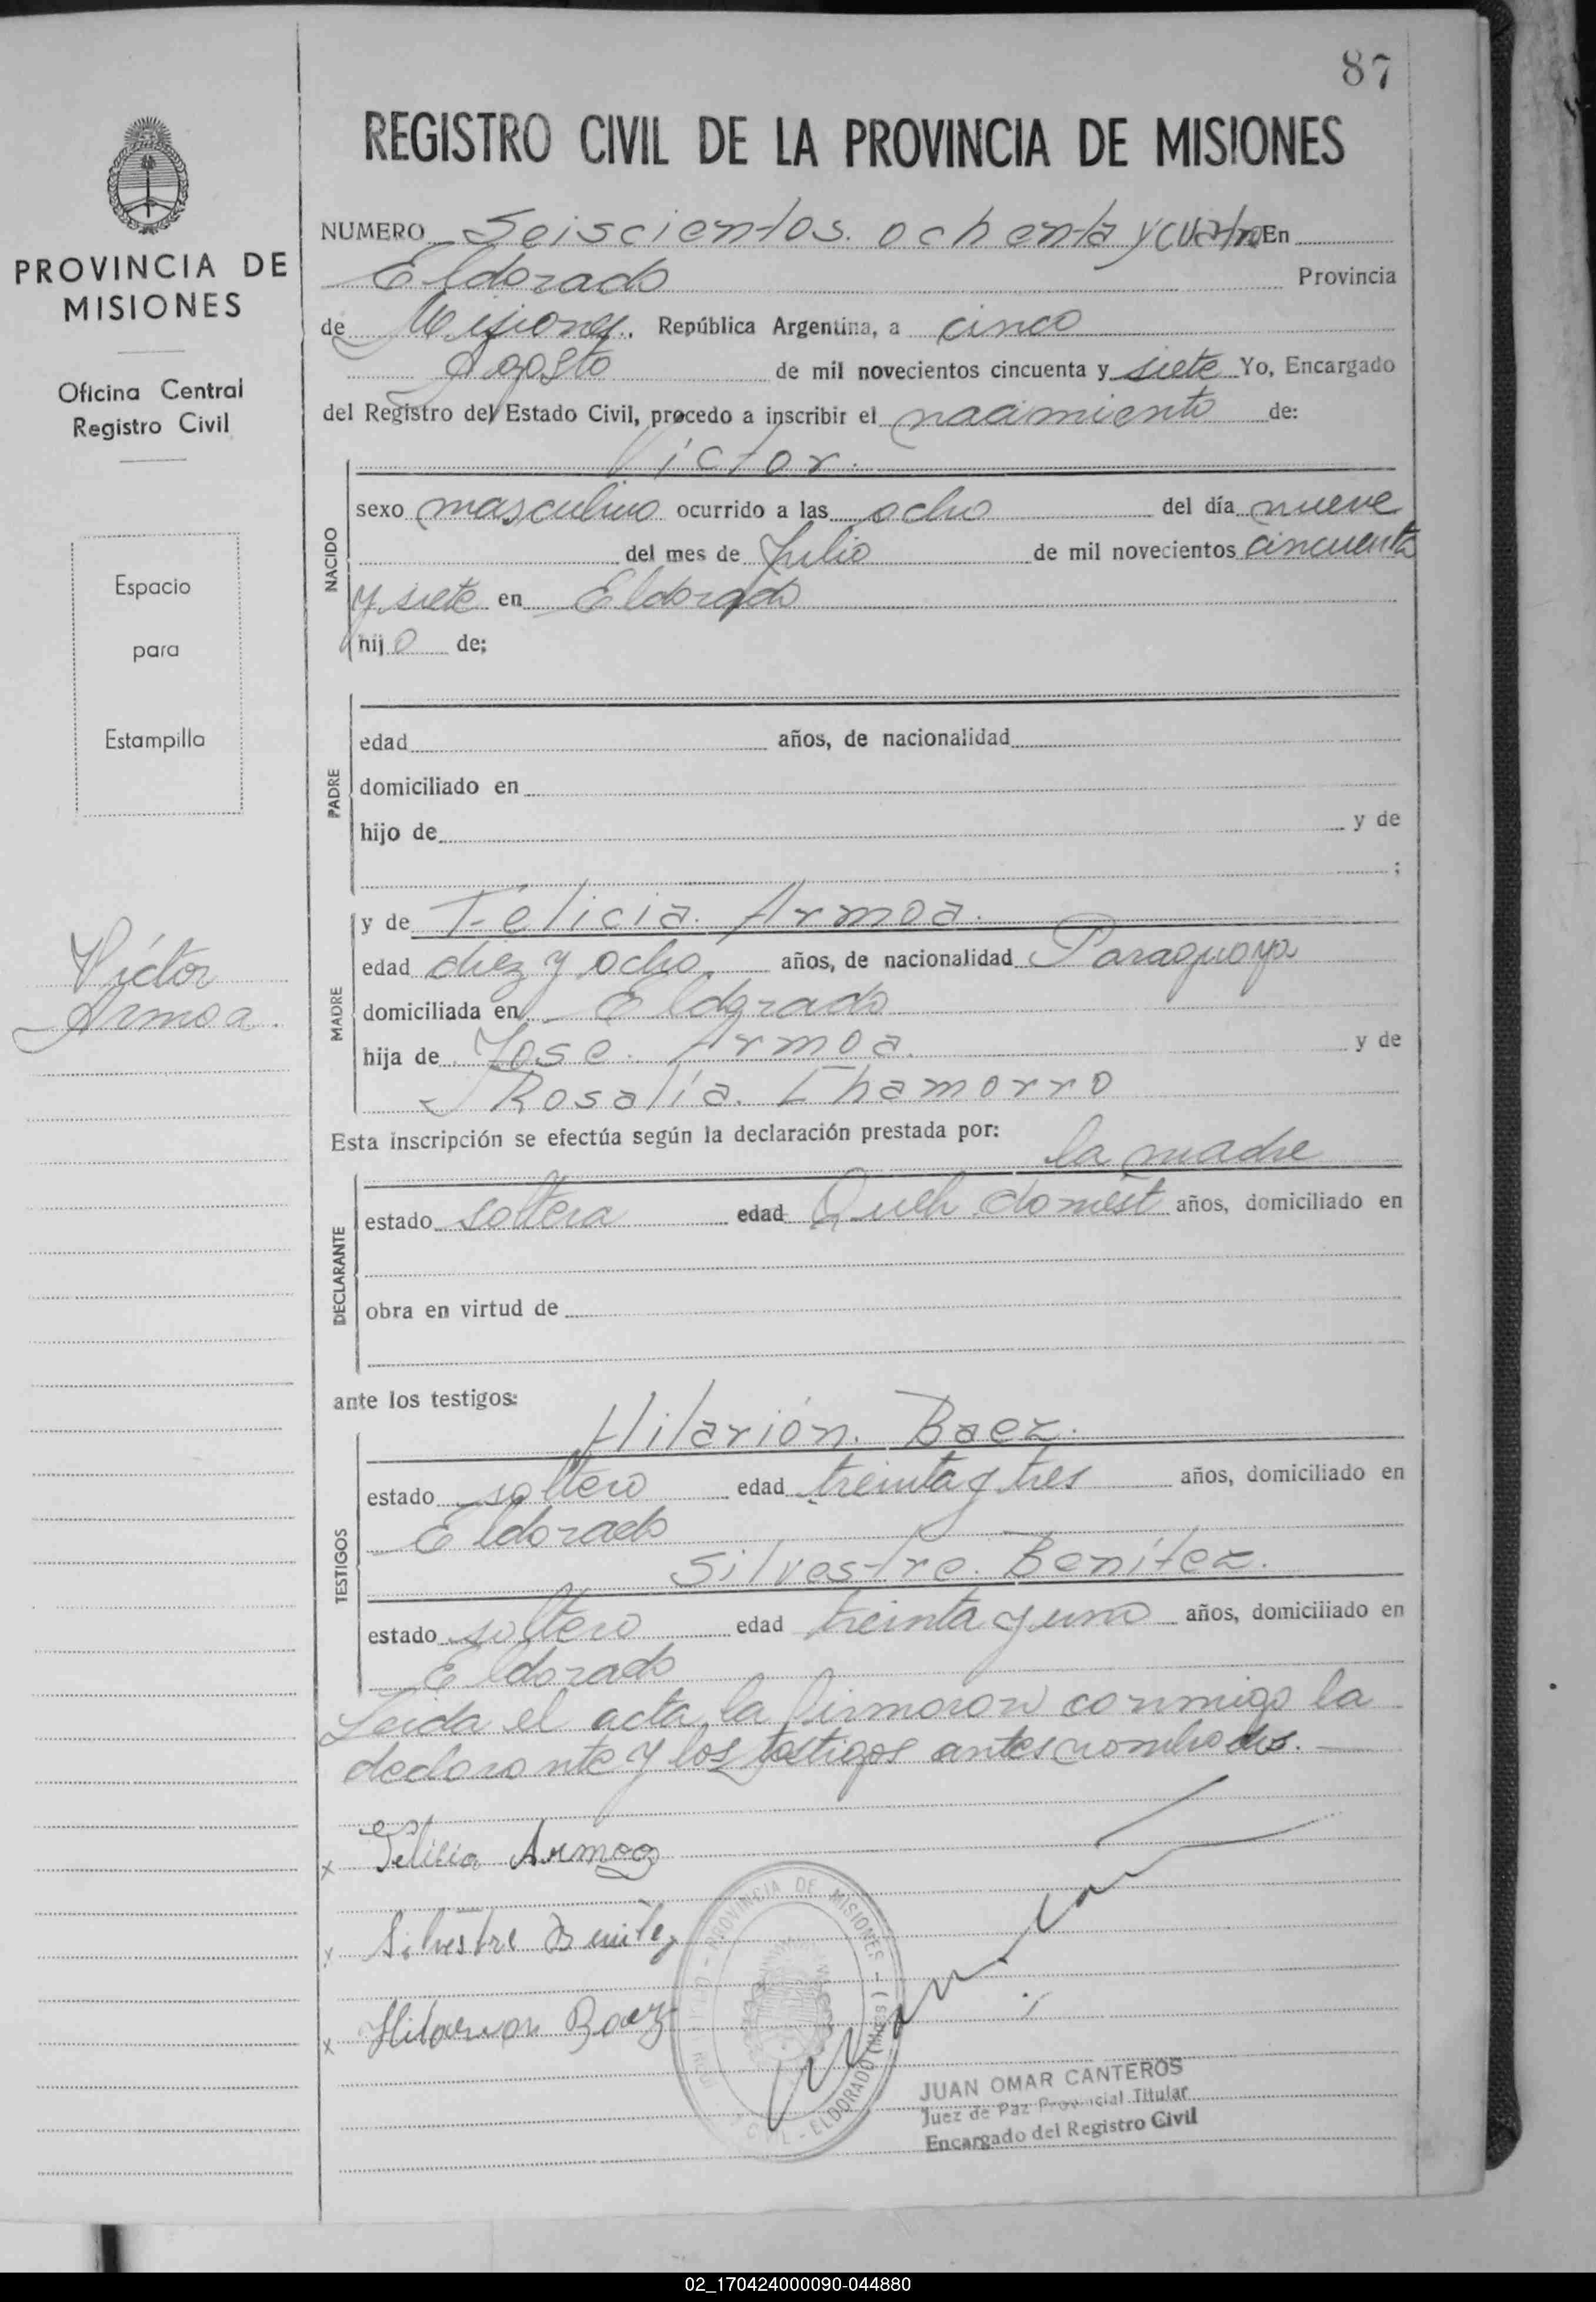 87
REGISTRO CIVIL DE LA PROVINCIA DE MISIONES
PROVINCIA DE
MISIONES
Oficina Central
Registro Civil
Espacio
para
Estampilla
Víctor
Armoa.
NUMERO Seiscientos ochenta y cuatro En
Eldorado Provincia
de Misiones. República Argentina, a cinco
Agosto de mil novecientos cincuenta y siete Yo, Encargado
del Registro del Estado Civil, procedo a inscribir el nacimiento de:
NACIDO
Víctor.
sexo masculino ocurrido a las ocho del día nueve
del mes de Julio de mil novecientos cincuenta
y siete en Eldorado
hijo de;
PADRE
edad años, de nacionalidad
domiciliado en
hijo de y de
;
MADRE
y de Felicia. Armoa.
edad diez y ocho años, de nacionalidad Paraguaya
domiciliada en Eldorado
hija de Jose. Armoa. y de
Rosalía. Chamorro
Esta inscripción se efectúa según la declaración prestada por:
la madre
DECLARANTE
estado soltera edad Queh. domést años, domiciliado en
obra en virtud de
ante los testigos:
TESTIGOS
Hilarión. Baez.
estado soltero edad treinta y tres años, domiciliado en
Eldorado
Silvestre. Benítez.
estado soltero edad treinta y uno años, domiciliado en
Eldorado
Leida el acta, la firmaron conmigo la
declarante y los testigos antes nombrados.
x Felicia Armoa
x Silvestre Benitez
x Hilarion Baez
PROVINCIA DE MISIONES - ELDORADO (Mnes)
JUAN OMAR CANTEROS
Juez de Paz Provincial Titular
Encargado del Registro Civil
02_170424000090-044880